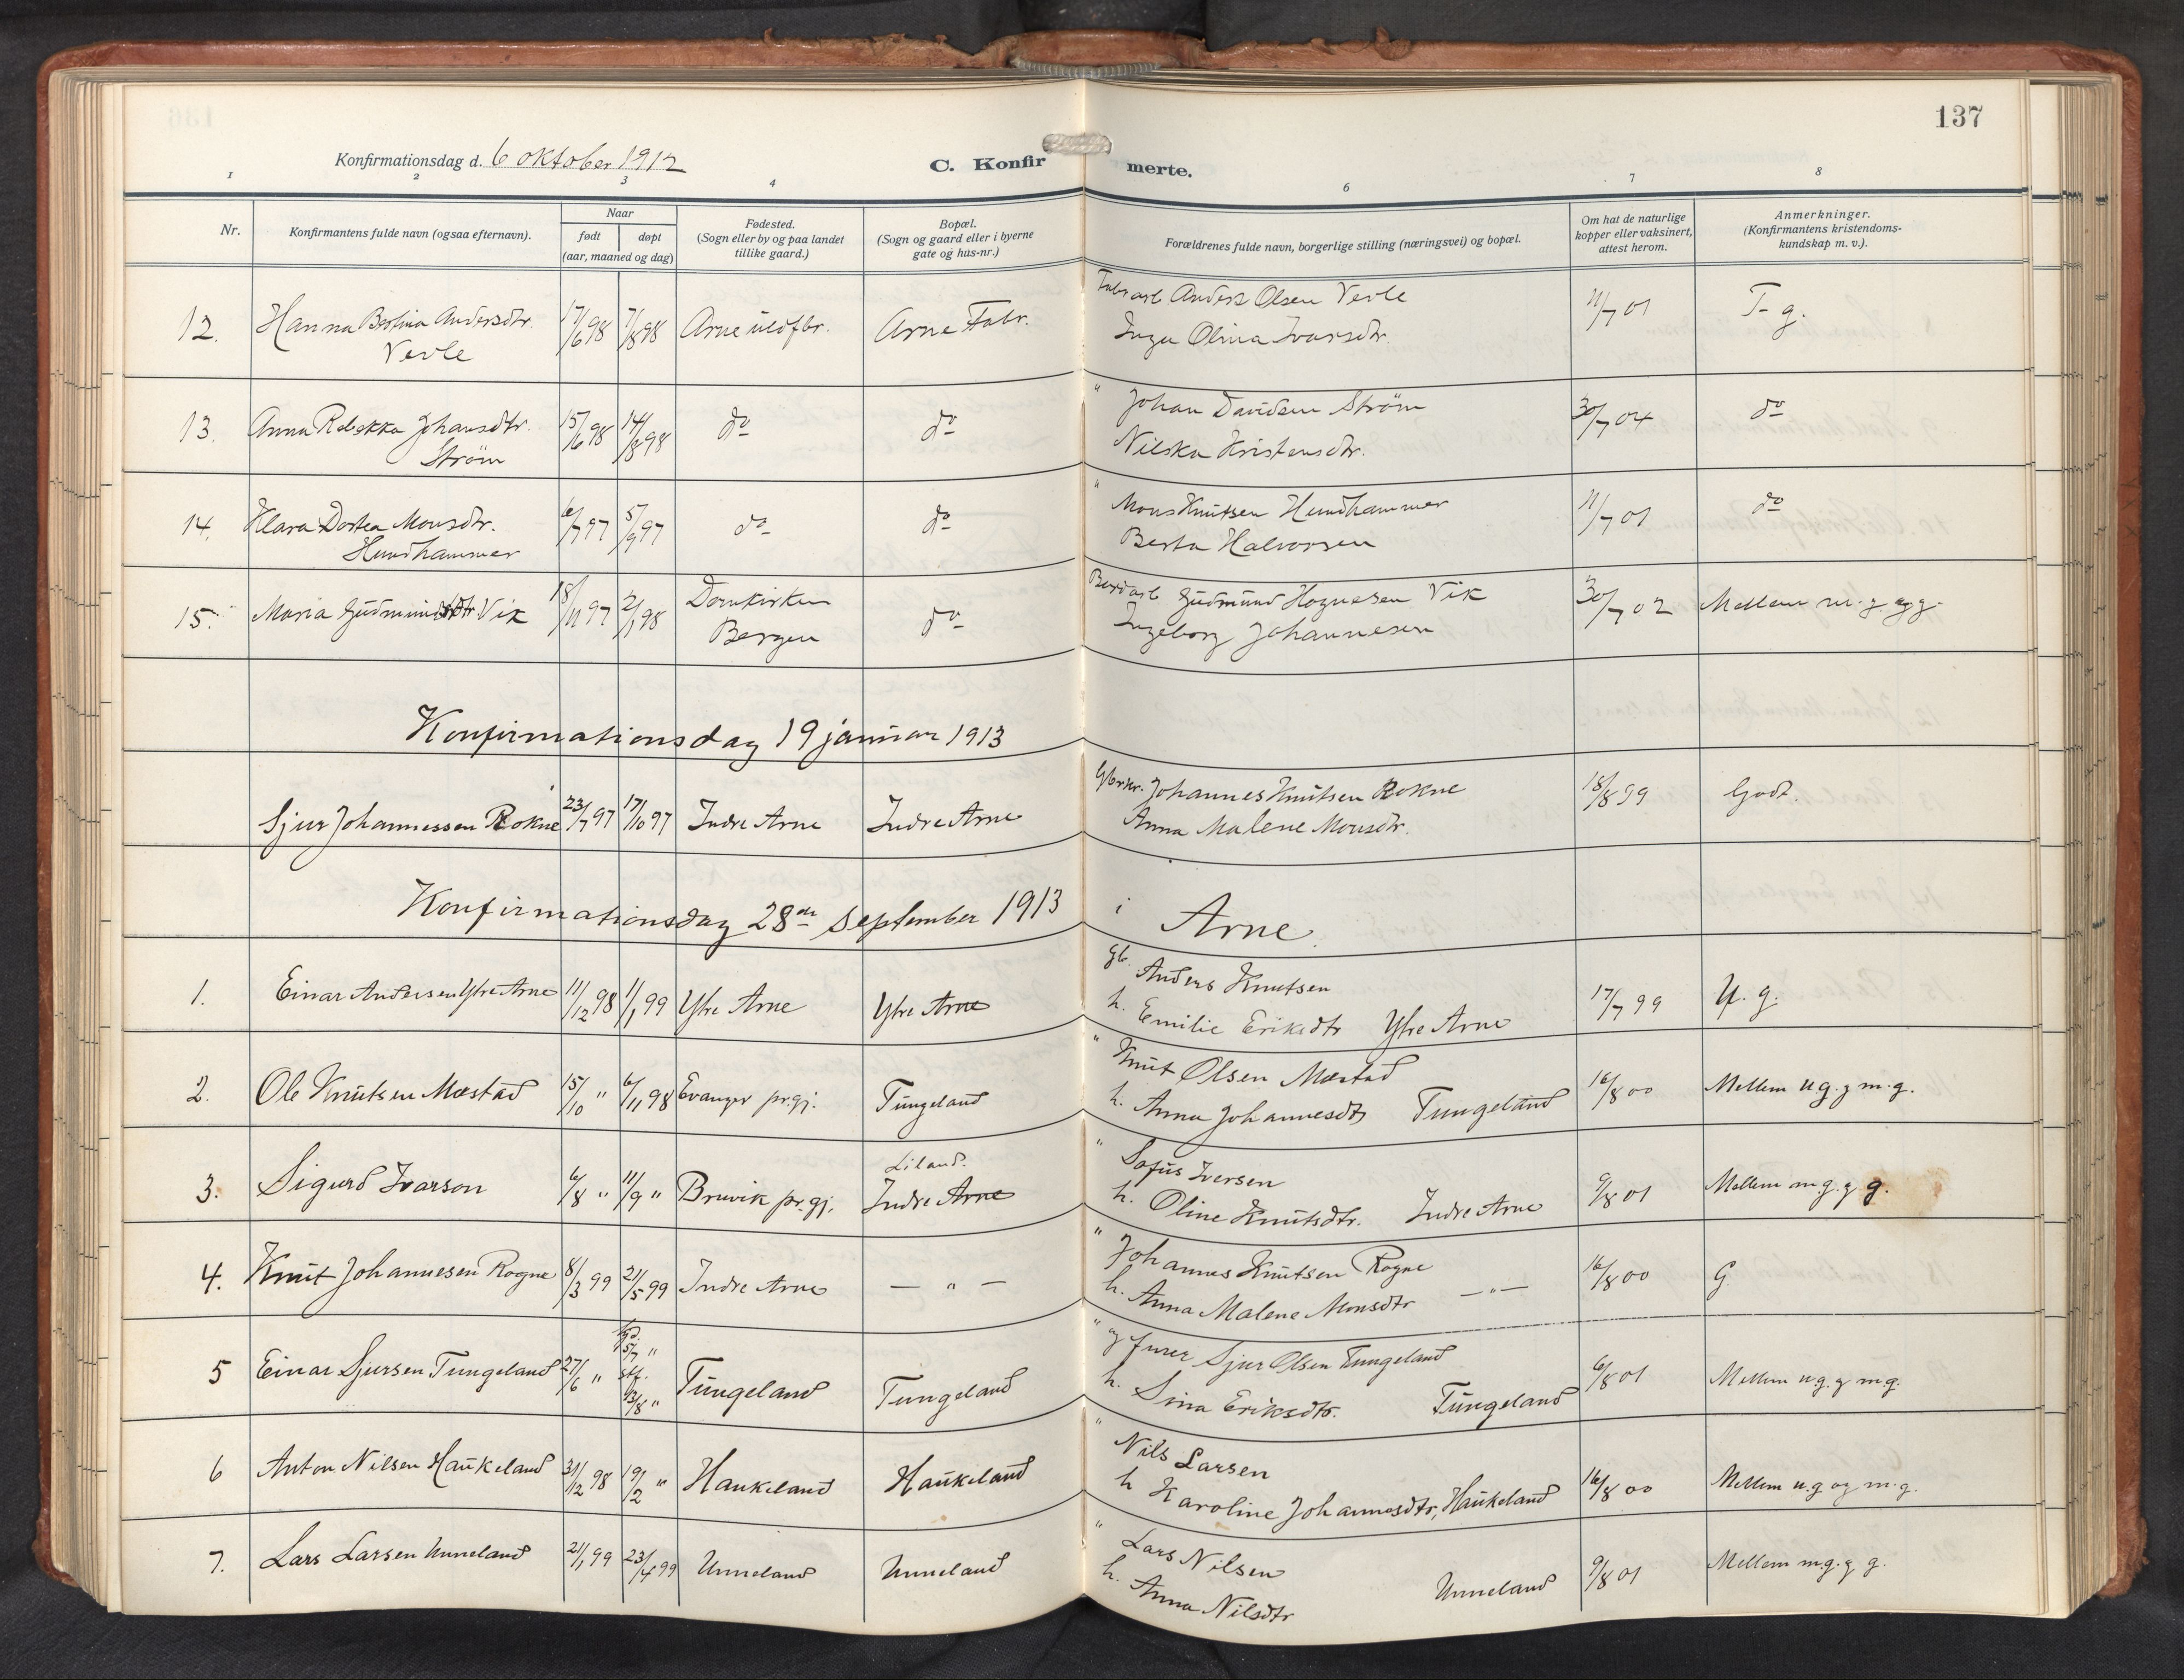 137
Konfirmationsdag d. 6 oktober 1912
C. Konfirmerte.
1 2 3 4 6 7 8
Nr.
Konfirmantens fulde navn (ogsaa efternavn).
Naar
født døpt
(aar, maaned og dag)
Fødested.
(Sogn eller by og paa landet
tillike gaard.)
Bopæl.
(Sogn og gaard eller i byerne
gate og hus-nr.)
Forældrenes fulde navn, borgerlige stilling (næringsvei) og bopæl.
Om hat de naturlige
kopper eller vaksinert,
attest herom.
Anmerkninger.
(Konfirmantens kristendoms-
kundskap m. v.).
12. Hanna Bertina Andersdtr. 17/6 98 7/8 98 Arne uldfbr. Arne Fabr. Fabr arb Anders Olsen Vevle 11/7 01 T- g.
Vevle Inga Olina Ivarsdtr.
13. Anna Rebekka Johansdtr. 15/6 98 14/8 98 do do " Johan Davidsen Ström 30/7 04 do
Ström Nilska Kristensdtr.
14. Klara Dortea Monsdtr. 6/7 97 5/9 97 do do " Mons Knutsen Hundhammer 11/7 01 do
Hundhammer Berta Halvorsen
15. Maria Gudmundsdtr Vik 18/11 97 2/1 98 Domkirken do Gudmund Hognesen Vik 30/7 02 Mellem m.g. og g.
Bergen Ingeborg Johannesen
Konfirmationsdag 19 januar 1913
Sjur Johannessen Rokne 23/7 97 17/10 97 Indre Arne Indre Arne Gbrkr. Johannes Knutsen Rokne 18/8 99 Godt.
Anna Malene Monsdtr.
Konfirmationsdag 28de september 1913 i Arne.
1. Einar Andersen Ytre Arne 11/12 98 1/1 99 Ytre Arne Ytre Arne Gb. Anders Knutsen 17/7 99 M. g.
h. Emilie Eriksdtr Ytre Arne
2. Ole Knutsen Mæstad 15/10 " 6/11 98 Evanger pr.gj. Tungeland " Knut Olsen Mæstad 16/8 00 Mellem u g. g m.g.
h. Anna Johannesdtr Tungeland
3. Sigurd Ivarson 6/8 " 11/9 " Bruvik pr.gj. Liland. " Sofus Iversen 9/8 01 Mellem m.g. g g.
Indre Arne h. Oline Knutsdtr. Indre Arne
4. Knut Johannesen Rogne 8/3 99 21/5 99 Indre Arne — " — " Johannes Knutsen Rogne 16/8 00 G.
h. Anna Malene Monsdtr — " —
5 Einar Sjursen Tungeland 27/6 " 5/7 " stf. 13/8 " Tungeland Tungeland " og furer Sjur Olsen Tungeland 6/8 01 Mellem u g. g m.g.
h. Sina Eriksdtr. Tungeland
6 Anton Nilsen Haukeland 31/12 98 19/2 " Haukeland Haukeland " Nils Larsen 16/8 00 Mellem u.g og m.g.
h Karoline Johannesdtr, Haukeland
7. Lars Larsen Unneland 21/1 99 23/4 99 Unneland Unneland " Lars Nilsen 9/8 01 Mellem m.g. g g.
h. Anna Nilsdtr Unneland